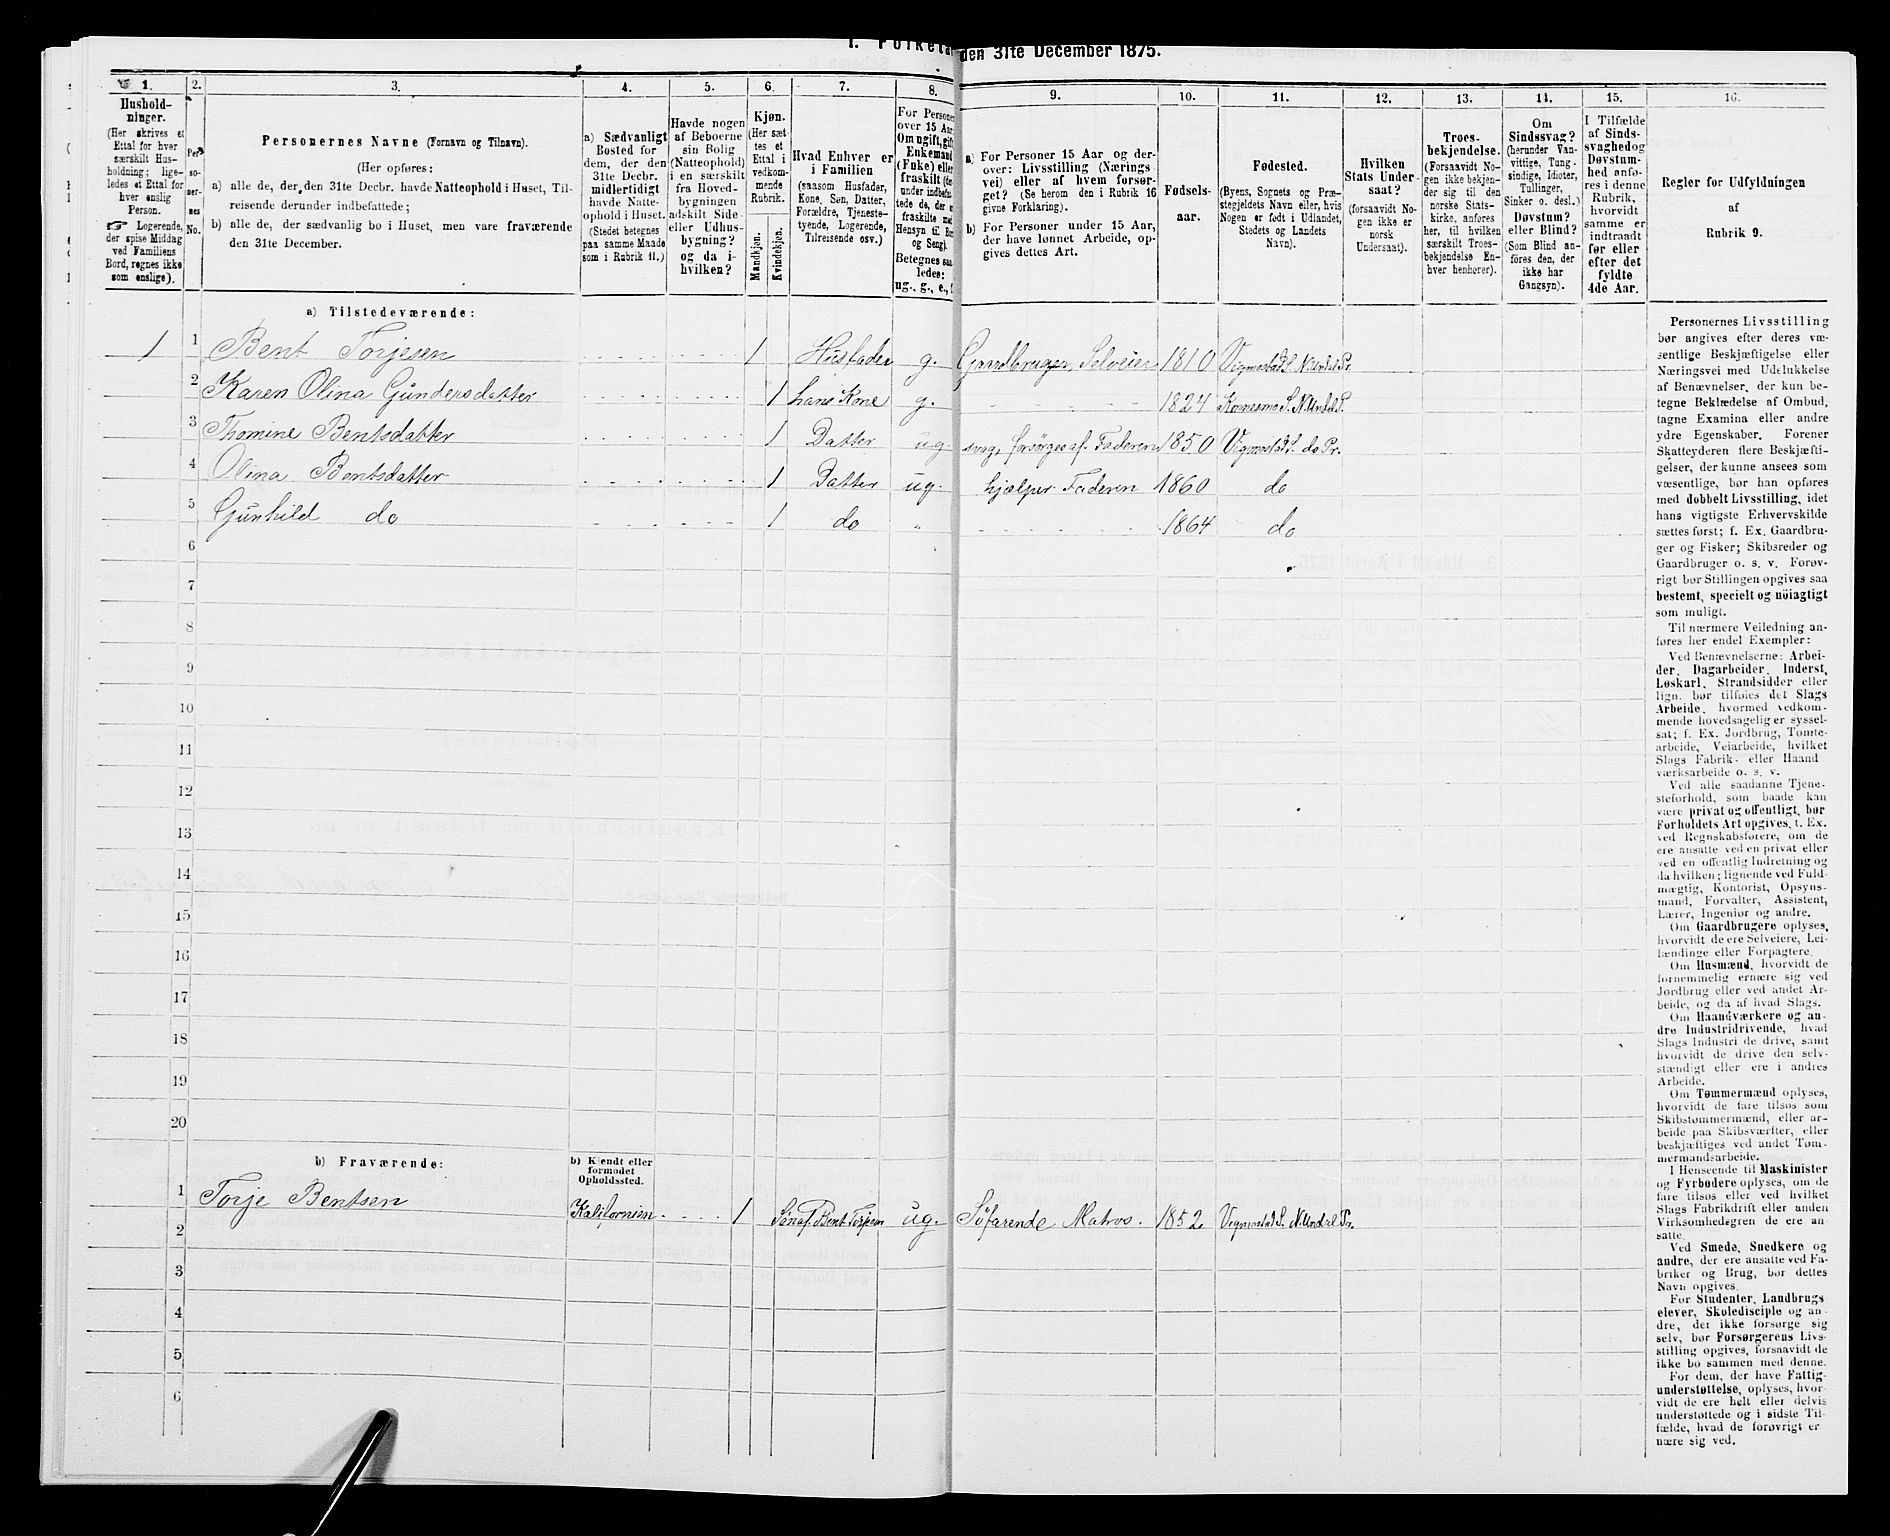 den 31te December 1875.
1.
2.
3.
4.
5.
6.
7.
8.
9.
10.
11.
12.
13.
14.
15.
16.
Hushold-
ninger.
(Her skrives et
Ettal for hver
særskilt Hus-
holdning; lige-
ledes et Ettal for
hver enslig
Person.
☞ Logerende,
der spise Middag
ved Familiens
Bord, regnes ikke
som enslige).
Per-
so-
ner-
nes
No.
Personernes Navne (Fornavn og Tilnavn).
(Her opføres:
a) alle de, der den 31te Decbr. havde Natteophold i Huset, Til-
reisende derunder indbefattede;
b) alle de, der sædvanlig bo i Huset, men vare fraværende
den 31te December.
a) Sædvanligt
Bosted for
dem, der den
31te Decbr.
midlertidigt
havde Natte-
ophold i Huset.
(Stedet betegnes
paa samme Maade
som i Rubrik 11.)
Havde nogen
af Beboerne
sin Bolig
(Natteophold)
i en særskilt
fra Hoved-
bygningen
adskilt Side-
eller Udhus-
bygning?
og da i-
hvilken?
Kjøn.
(Her sæt-
tes et
Ettal i
vedkom-
mende
Rubrik.
Mandkjøn.
Kvindekjøn.
Hvad Enhver er
i Familien
(saasom Husfader,
Kone, Søn, Datter,
Forældre, Tjeneste-
tyende, Logerende,
Tilreisende osv.)
For Persone
over 15 Aar
Om ugift, gift
Enkemand
(Enke) eller
fraskilt
under indbefat-
tede de, der e
fraskilte
Hensyn til
og Seng).
Betegnes saa
ledes:
ug., g., e.,
a) For Personer 15 Aar og der-
over: Livsstilling (Nærings-
vei) eller af hvem forsør-
get? (Se herom den i Rubrik 16
givne Forklaring).
b) For Personer under 15 Aar,
der have lønnet Arbeide, op-
gives dettes Art.
Fødsels-
aar.
Fødested.
(Byens, Sognets og Præ-
stegjeldets Navn eller, hvis
Nogen er født i Udlandet,
Stedets og Landets
Navn).
Hvilken
Stats Under-
saat?
(forsaavidt No-
gen ikke er
norsk
Undersaat).
Troes-
bekjendelse.
(Forsaavidt No-
gen ikke bekjen-
der sig til den
norske Stats-
kirke, anføres
her, til hvilken
særskilt Troes-
bekjendelse En-
hver henhører).
Om
Sindssvag?
(herunder Van-
vittige, Tung-
sindige, Idioter,
Tullinger,
Sinker o. desl.)
Døvstum?
eller Blind?
(Som Blind an-
føres den, der
ikke har
Gangsyn).
I Tilfælde
af Sinds-
svaghed og
Døvstum-
hed anfø-
res i denne
Rubrik,
hvorvidt
samme er
indtraadt
før eller
efter det
fyldte
4de Aar.
Regler for Udfyldningen
af
Rubrik 9.
a) Tilstedeværende:
1 1 Bent Torjesen 1 Husfader g. Gaardbruger, Selveier 1810 Vigmostad S. N. Undal Pr.
2 Karen Olina Gundersdatter 1 hans Kone g. 1824 S. N. Undal P.
3 Thomine Bentsdatter 1 Datter ug svag, forsørges af Faderen 1850 Vigmostad S. do Pr.
4 Olina Bentsdatter 1 Datter ug. hjælper Faderen 1860 do
5 Gunhild do 1 do „ 1864 do
6
7
8
9
10
11
12
13
14
15
16
17
18
19
20
b) Fraværende:
b) Kjendt eller
formodet
Opholdssted.
1 Torje Bentsen Kalifornien 1 Søn af Bent Torjesen ug. Söfarende Matros. 1852 Vigmostad S. N. Undal Pr.
2
3
4
5
6
Personernes Livsstilling
bør angives efter deres væ-
sentlige Beskjæftigelse eller
Næringsvei med Udelukkelse
af Benævnelser, der kun be-
tegne Beklædelse af Ombud,
tagne Examina eller andre
ydre Egenskaber. Forener
Skatteyderen flere Beskjæfti-
gelser, der kunne ansees som
væsentlige, bør han opføres
med dobbelt Livsstilling, idet
hans vigtigste Erhvervskilde
sættes først; f. Ex. Gaardbru-
ger og Fisker; Skibsreder og
Gaardbruger o. s. v. Forøv-
rigt bør Stillingen opgives saa
bestemt, specielt og nöiagtigt
som muligt.
Til nærmere Veiledning an-
føres her endel Exempler:
Ved Benævnelserne: Arbei-
der, Dagarbeider, Inderst,
Løskarl, Strandsidder eller
lign. bør tilføies det Slags
Arbeide, hvormed vedkom-
mende hovedsagelig er syssel-
sat; f. Ex. Jordbrug, Tomte-
arbeide, Veiarbeide, hvilket
Slags Fabrik- eller Haand
værksarbeide o. s. v.
Ved alle saadanne Tjene-
steforhold, som baade kan
være privat og offentligt, bør
Forholdets Art opgives, f. Ex.
ved Regnskabsførere, om de
ere ansatte ved en privat eller
ved en offentlig Indretning og
da hvilken; lignende ved Fuld-
mægtig, Kontorist, Opsyns-
mand, Forvalter, Assistent,
Lærer, Ingeniør og andre.
Om Gaardbrugere oplyses,
hvorvidt de ere Selveiere, Lei-
lændinge eller Forpagtere.
Om Husmænd, hvorvidt de
fornemmelig ernære sig ved
Jordbrug eller ved andet Ar-
beide, og da af hvad Slags.
Om Haandværkere og an-
dre Industridrivende, hvad
Slags Industri de drive, samt
hvorvidt de drive den selv-
stændigt eller ere i andres
Arbeide.
Om Tømmermænd oplyses,
hvorvidt de fare tilsøs som
Skibstømmermænd, eller ar-
beide paa Skibsværfter, eller
beskjæftiges ved andet Tøm-
mermandsarbeide.
I Henseende til Maskinister
og Fyrbødere oplyses, om de
fare tilsøs eller ved hvilket
Slags Fabrikdrift eller anden
Virksomhedsgren de ere an-
satte.
Ved Smede, Snedkere og
andre, der ere ansatte ved Fa-
briker og Brug, bør dettes
Navn opgives.
For Studenter, Landbrugs
elever, Skoledisciple og an-
dre, der ikke forsørge sig
selv, bør Forsørgerens Livs-
stilling opgives, forsaavidt de
ikke bo sammen med denne.
For dem, der have Fattig-
understøttelse, oplyses, hvor-
vidt de ere helt eller delvis
understøttede og i sidste Til-
fælde, hvad de forøvrigt er
nære sig ved.